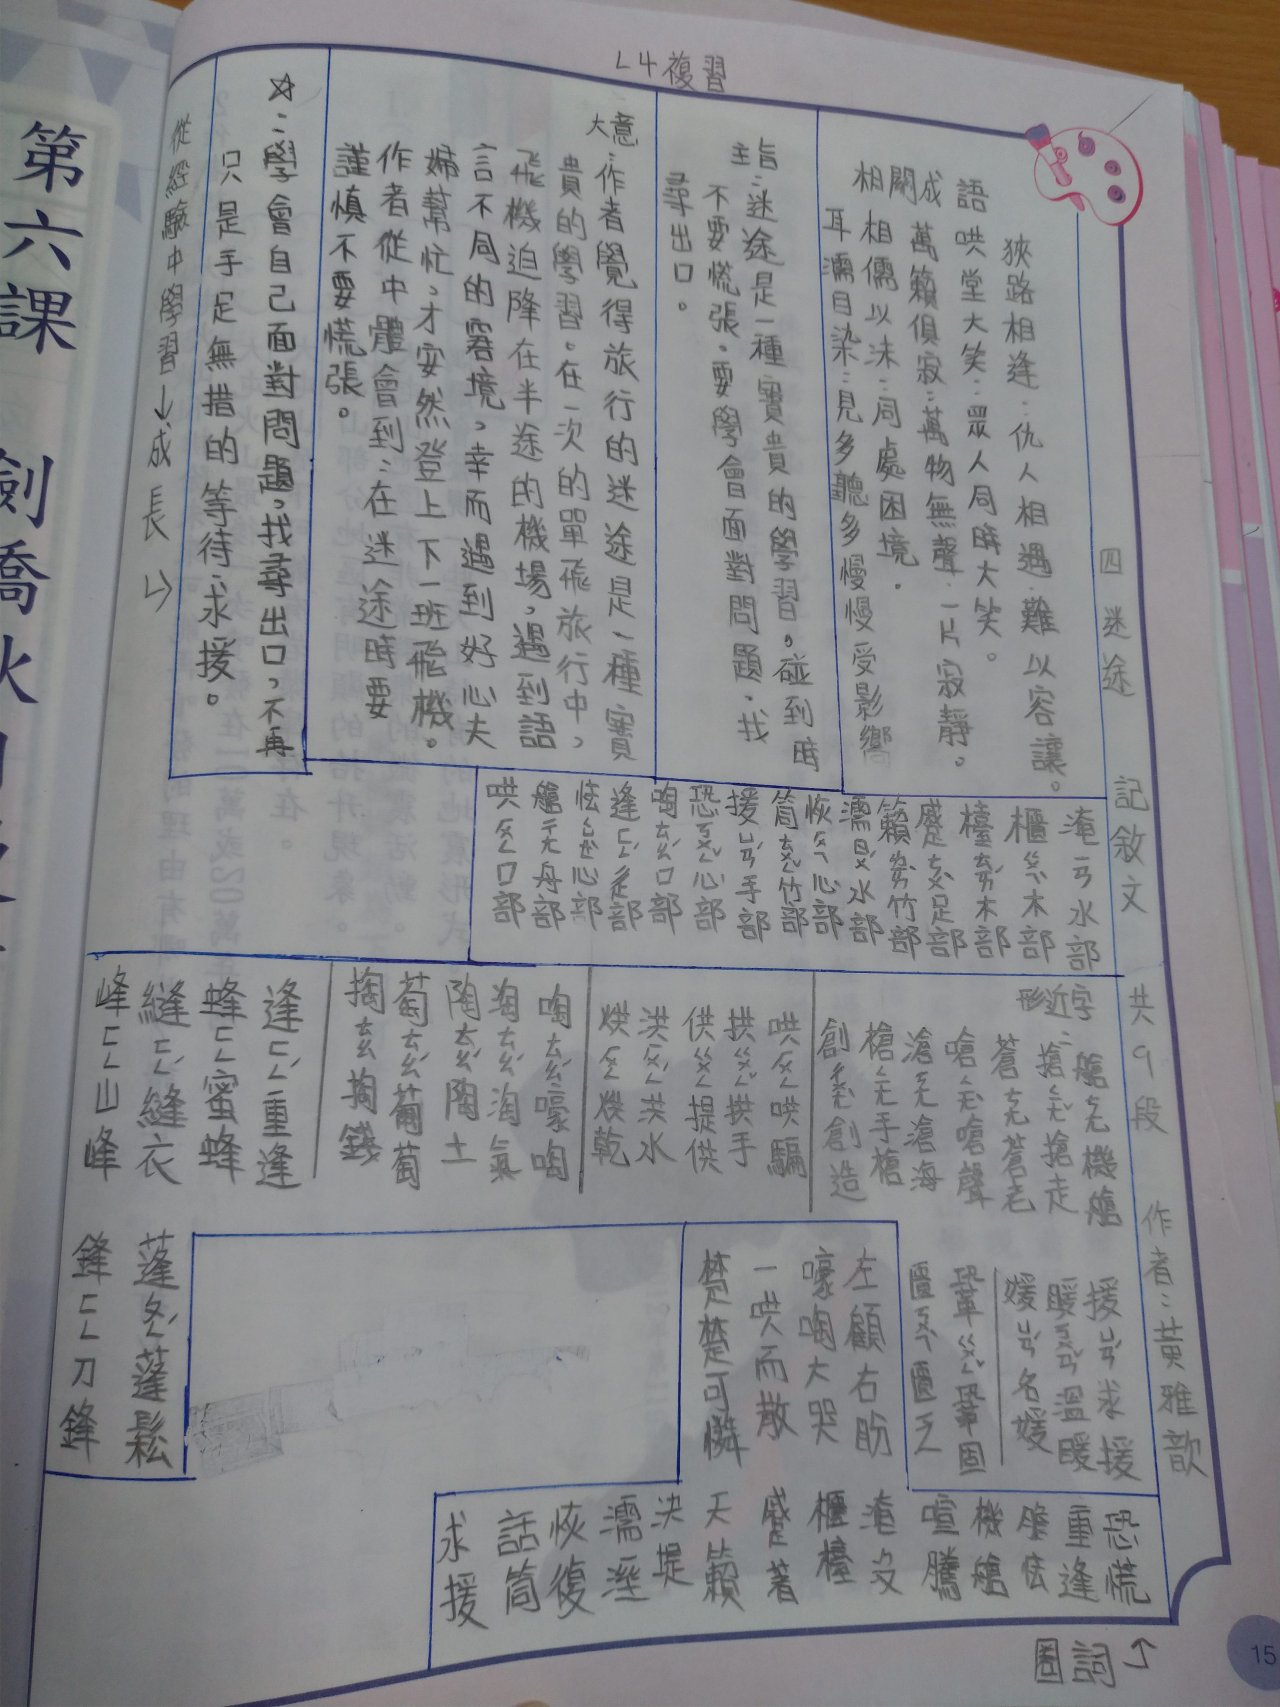 L4複習
四 迷途 記敘文 共9段 作者:黃雅歆
狹路相逢:仇人相遇.難以容讓。
語 哄堂大笑:眾人同時大笑。
成 萬籟俱寂:萬物無聲.一片寂靜。
關 相儒以沫:同處困境.
相 耳濡目染:見多聽多慢慢受影響
主旨:迷途是一種寶貴的學習,碰到時
不要慌張.要學會面對問題.找
尋出口。
大意:作者覺得旅行的迷途是一種寶
貴的學習.在一次的單飛旅行中,
飛機迫降在半途的機場,遇到語
言不同的窘境,幸而遇到好心夫
婦幫忙,才安然登上下一班飛機。
作者從中體會到:在迷途時要
謹慎不要慌張。
☆:學會自己面對問題,找尋出口,不再
只是手足無措的等待.求援。
從經驗中學習→成長
淹ㄧㄢ水部
櫃ㄍㄨㄟˋ木部
檯ㄊㄞˊ木部
蹙ㄘㄨˋ足部
籟ㄌㄞˋ竹部
濡ㄖㄨˊ水部
恢ㄏㄨㄟ心部
筒ㄊㄨㄥˇ竹部
援ㄩㄢˊ手部
恐ㄎㄨㄥˇ心部
啕ㄊㄠˊ口部
逢ㄈㄥˊ辵部
怯ㄑㄩㄝˋ心部
艙ㄘㄤ舟部
哄ㄏㄨㄥ口部
形近字:
艙ㄘㄤ機艙
搶ㄑㄧㄤˇ搶走
蒼ㄘㄤ蒼老
嗆ㄑㄧㄤ嗆聲
滄ㄘㄤ滄海
槍ㄑㄧㄤ手槍
創ㄔㄨㄤˋ創造
哄ㄏㄨㄥˇ哄騙
拱ㄍㄨㄥˇ拱手
供ㄍㄨㄥ提供
洪ㄏㄨㄥˊ洪水
烘ㄏㄨㄥ烘乾
啕ㄊㄠˊ嚎啕
淘ㄊㄠˊ淘氣
陶ㄊㄠˊ陶土
萄ㄊㄠˊ葡萄
掏ㄊㄠ掏錢
逢ㄈㄥˊ重逢
蜂ㄈㄥ蜜蜂
縫ㄈㄥˊ縫衣
峰ㄈㄥ山峰
蓬ㄆㄥˊ蓬鬆
鋒ㄈㄥ刀鋒
援ㄩㄢˊ求援
暖ㄋㄨㄢˇ溫暖
媛ㄩㄢˊ名媛
鞏ㄍㄨㄥˇ鞏固
匱ㄎㄨㄟˋ匱乏
左顧右盼
嚎啕大哭
一哄而散
楚楚可憐
恐慌
重逢
膽怯
機艙
喧騰
淹沒
櫃檯
蹙著
天籟
決堤
濡溼
恢復
話筒
求援
圈詞
第六課 劍橋秋日
15